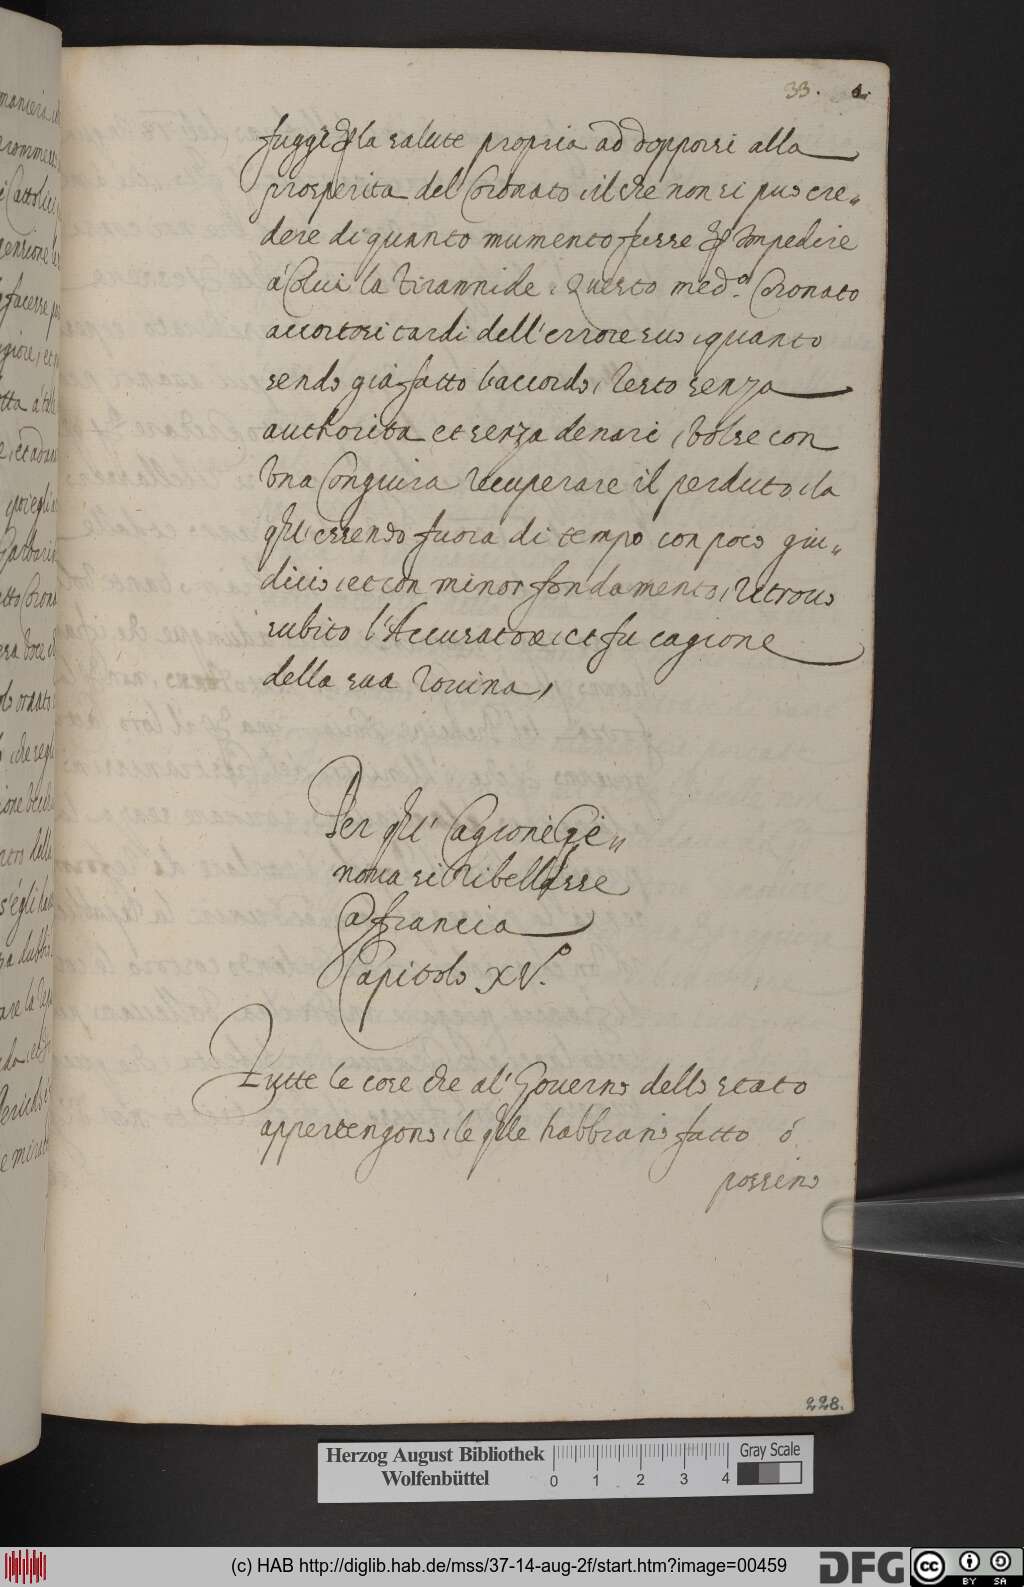 33.
fuggi p la salute propria ad opporsi alla
prosperita del Coronato, il che non si può cre„
dere di quanto mumento fusse p Impedire
á Colui la tirannide. Questo med.º Coronato
accortosi tardi dell'errore suo, quanto
sendo già fatto l'accordo, resto senza
authorita et senza denari, volse con
Vna Congiura recuperare il perduto, la
qŭl essendo fuora di tempo con poco giu„
dicio, et con minor fondamento, retrouo
subito l'Accusatore, et fu cagione
della sua rouina,
Per qŭl Cagione Ge„
noua si Ribellasse
a francia
Capitolo XV.º
Tutte le cose che al' Gouerno dello stato
appertengono, le qŭle habbiano fatto ó
possino
228.
Herzog August Bibliothek
Wolfenbüttel
0 1 2 3 4
Gray Scale
(c) HAB http://diglib.hab.de/mss/37-14-aug-2f/start.htm?image=00459
DFG
cc BY SA